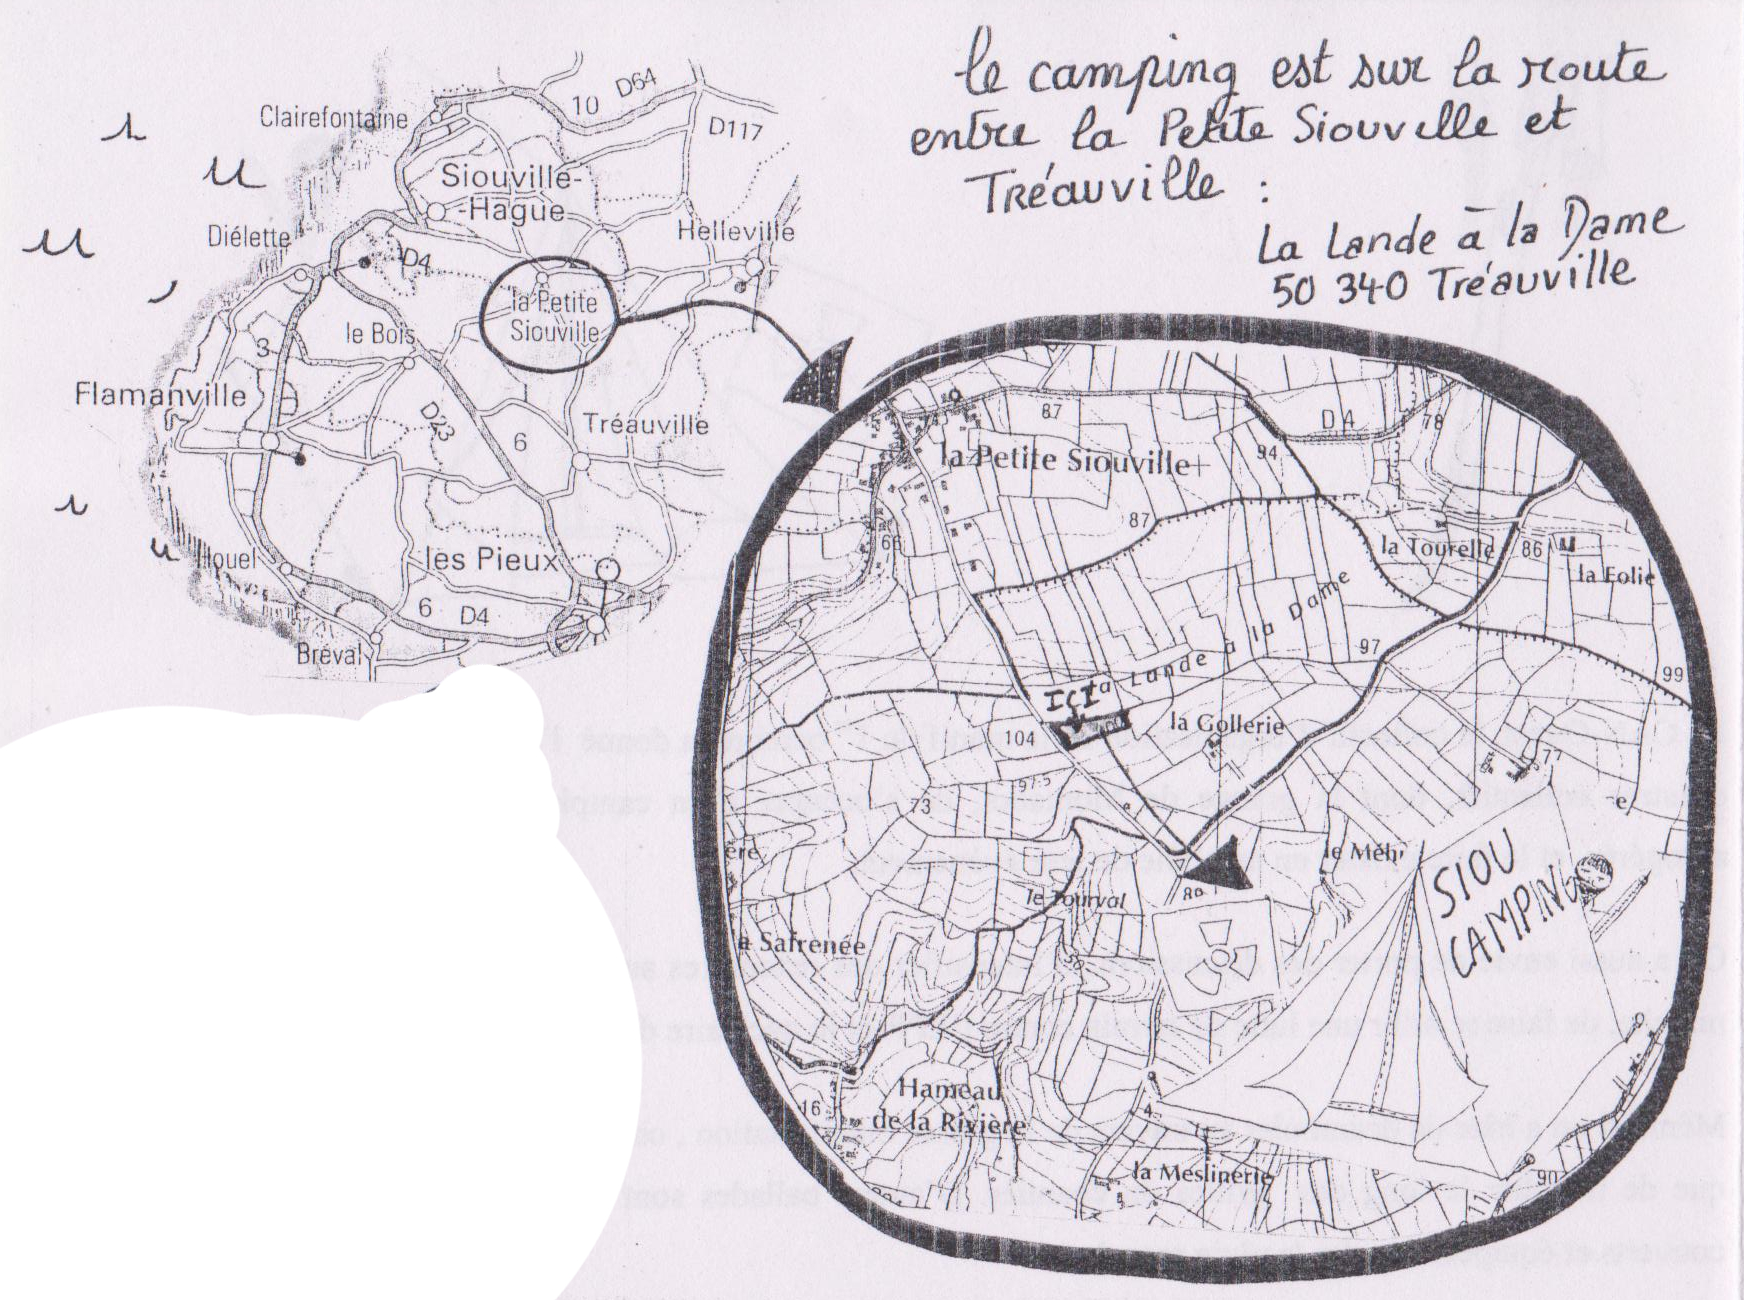 le camping est sur la route
entre la Petite Siouville et
Tréauville :
La Lande à la Dame
50 340 Tréauville
Clairefontaine
10
D64
D117
Siouville-
-Hague
Diélette
D4
Helleville
la Petite
Siouville
le Bois
3
Flamanville
D23
6
Tréauville
les Pieux
Houel
6
D4
Bréval
87
D4
78
la Petite Siouville
94
87
66
la Tourelle
86
la Folie
97
99
la Lande à la Dame
ICI
104
la Gollerie
77
97.5
73
le Fourval
89
SIOU
CAMPING
Hameau
de la Rivière
16
4
la Meslinerie
90